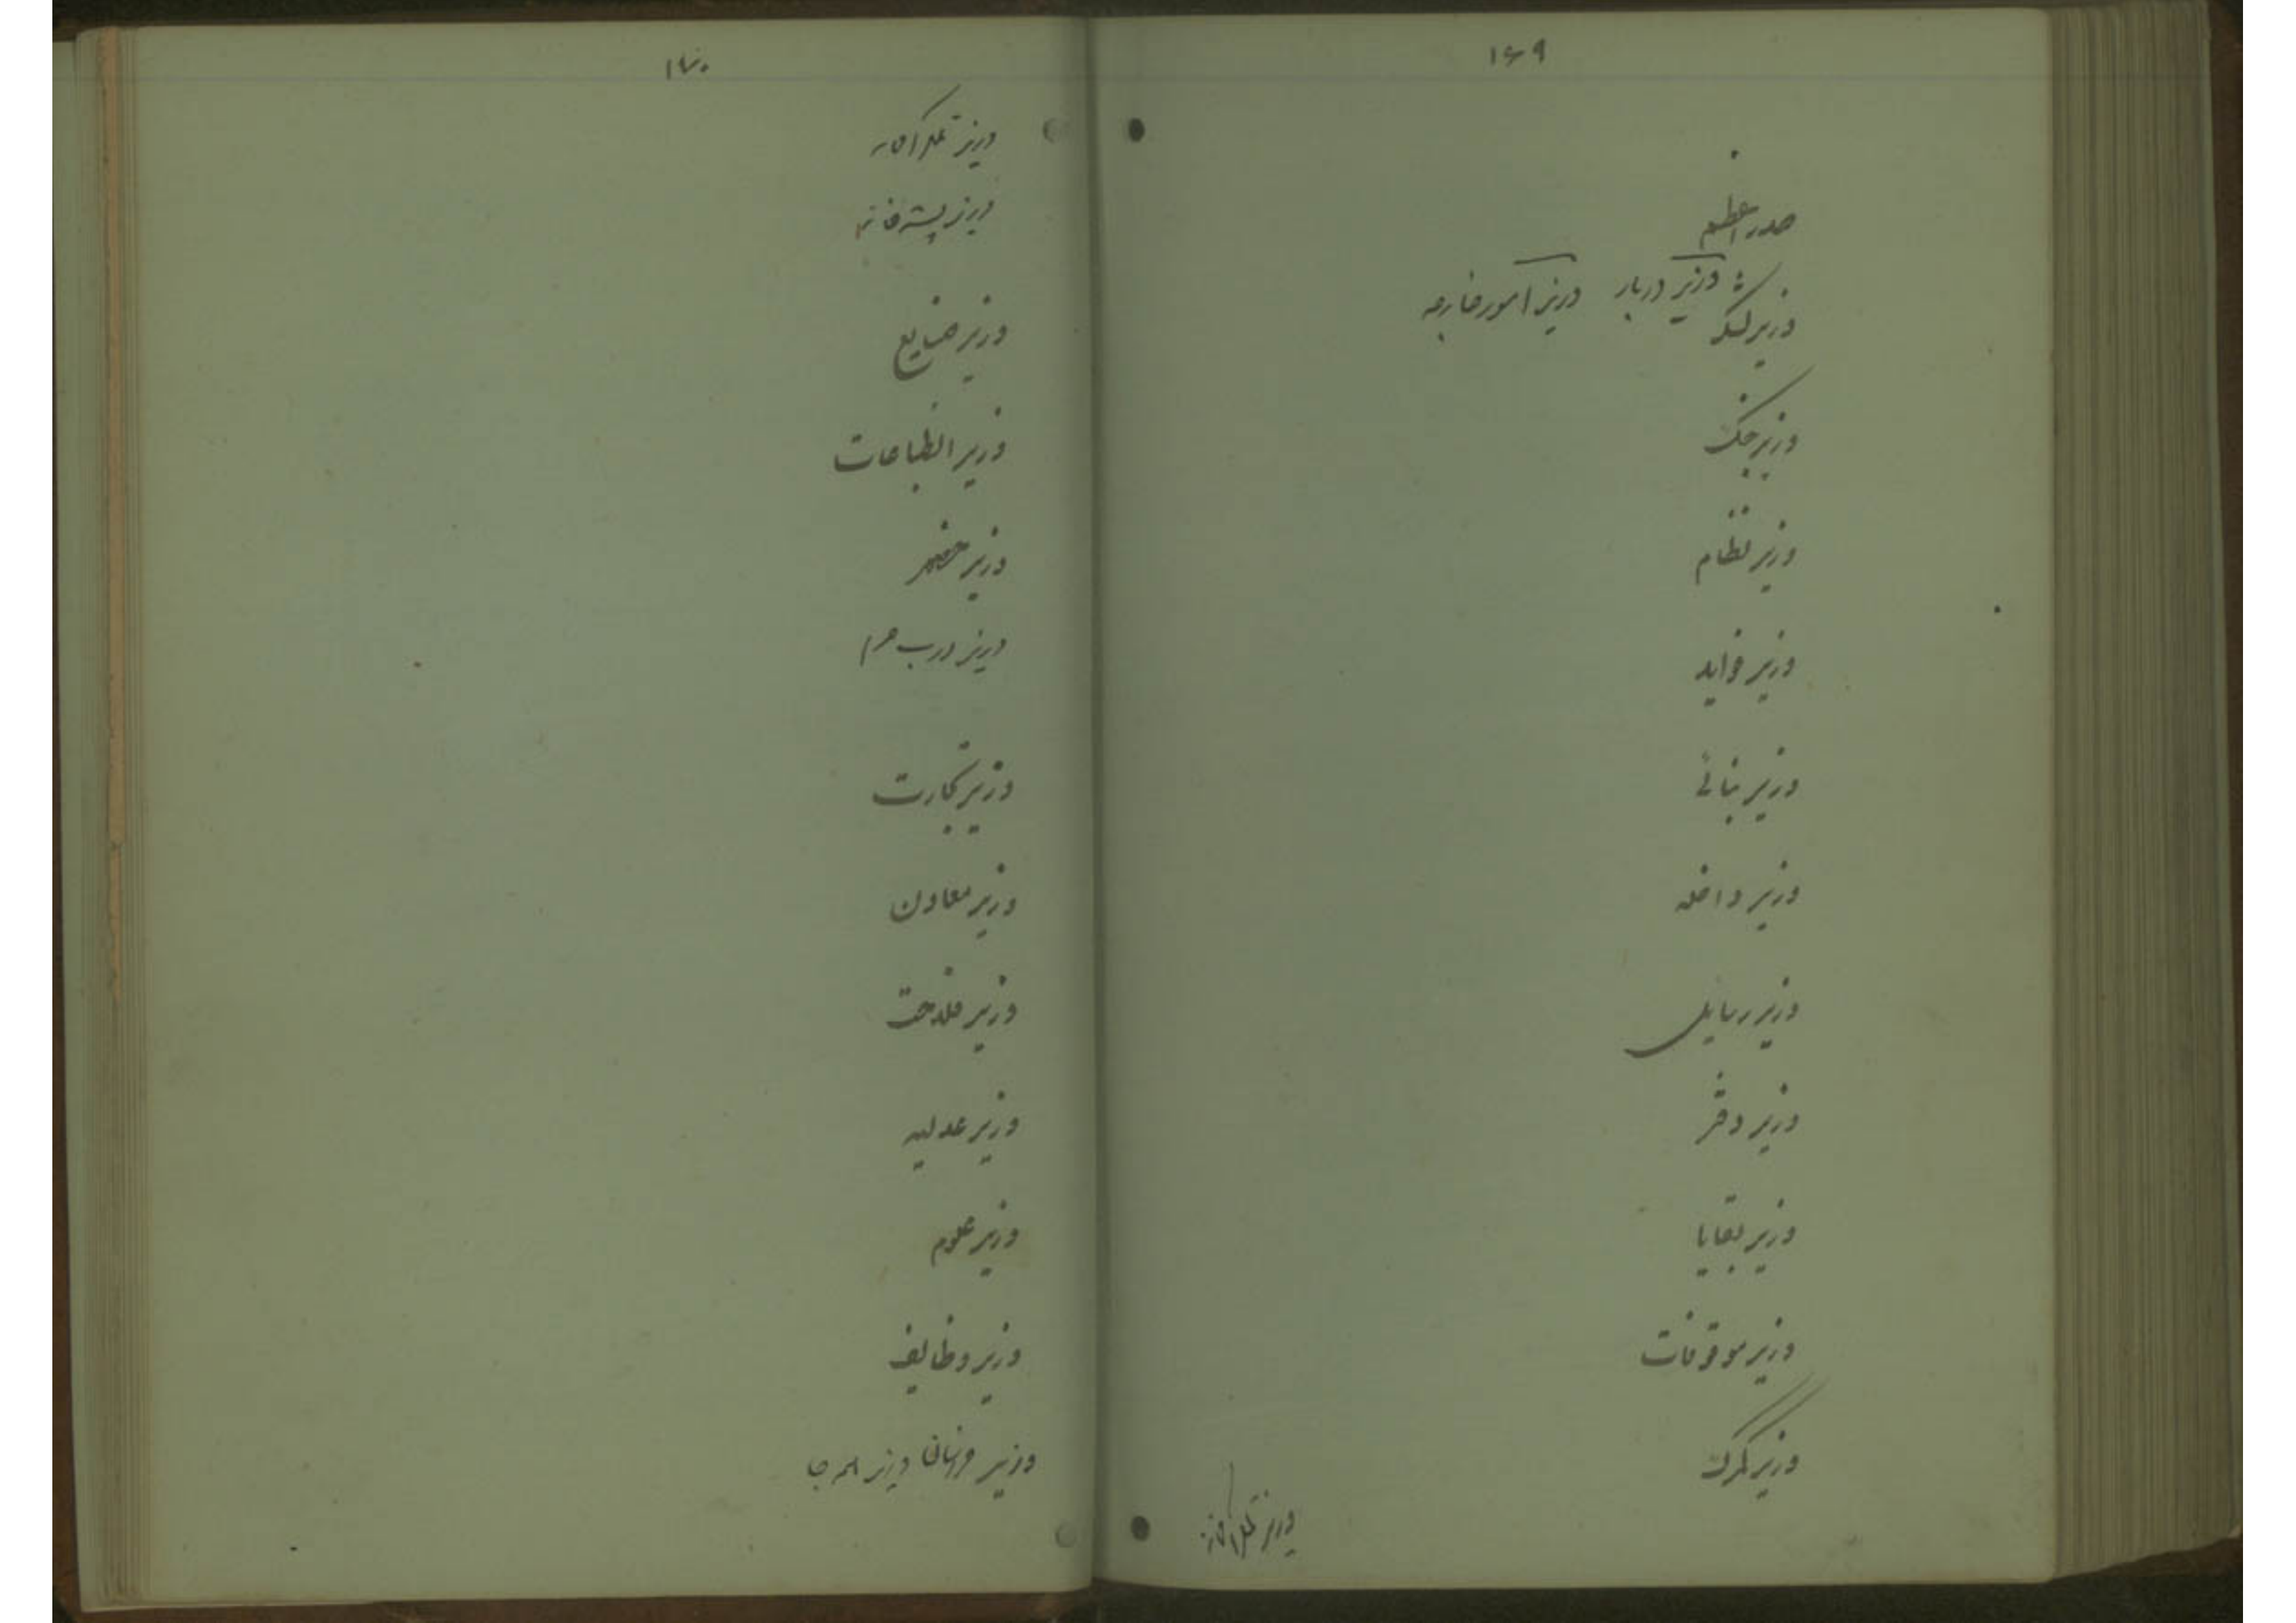 ۱۶۹
صدر اعظم
وزیر لشکر وزیر دربار وزیر امور خارجه
وزیر جنگ
وزیر نظام
وزیر فواید
وزیر بنائی
وزیر داخله
وزیر رسایل
وزیر دفتر
وزیر بقایا
وزیر موقوفات
وزیر گمرک
وزیر تلگرافخانه
۱۷۰
وزیر تلگرافخانه
وزیر پستخانه
وزیر صنایع
وزیر انطباعات
وزیر حضور
وزیر درب حرم
وزیر تجارت
وزیر معادن
وزیر فلاحت
وزیر عدلیه
وزیر علوم
وزیر وظایف
وزیر وزیر